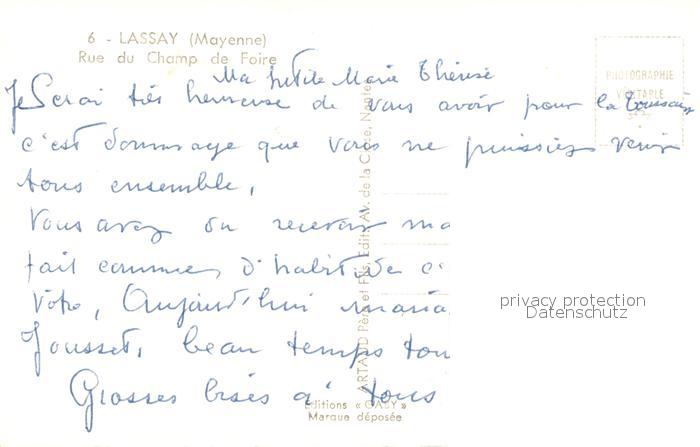 6 - LASSAY (Mayenne)
Rue du Champ de Foire
PHOTOGRAPHIE
VÉRITABLE
Ma petite Marie Thérèse
Je Serai très heureuse de vous avoir pour la Toussaint
c'est dommage que vous ne puissiez venir
tous ensemble,
Vous avez du recevoir ma
fait comme d'habitude
Aujourd'hui maria
Jousset, beau temps
Grosses bises à tous
ARTAUD Père et Fils, Édit., Av. de la Close, Nantes
privacy protection
Datenschutz
Editions « GABY »
Marque déposée